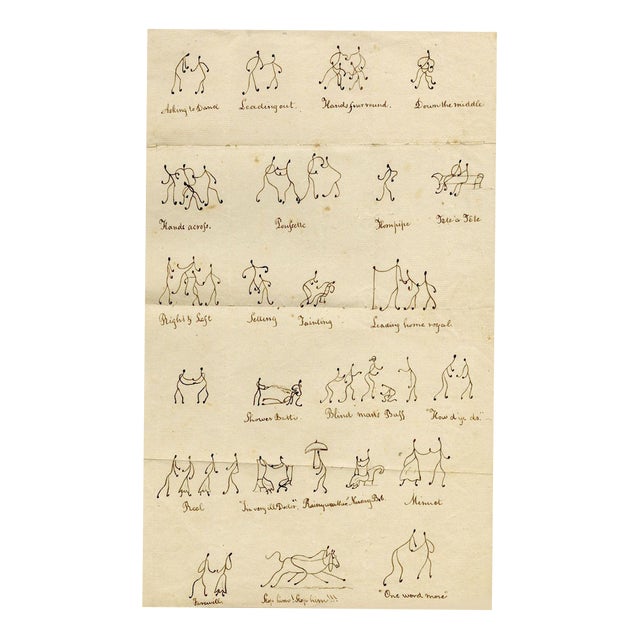 Asking to Dance
Leading out.
Hands four round.
Down the middle
Hands across.
Poussette
Hornpipe
Tete a Tête
Right & Left
Setting
Fainting
Leading home royal.
Shower Bath.
Blind mans Buff
"How d'ye do."
Reel
"I'm very ill Doctor".
Rainy weather
Nursing Bab.
Minuet
Farewell.
Stop him! Stop him!!!
"One word more"